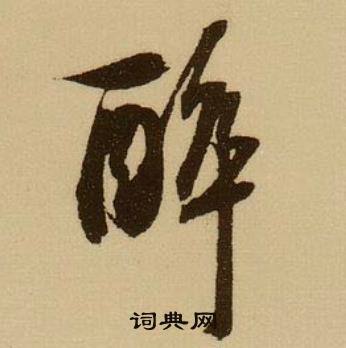 醉
词典网